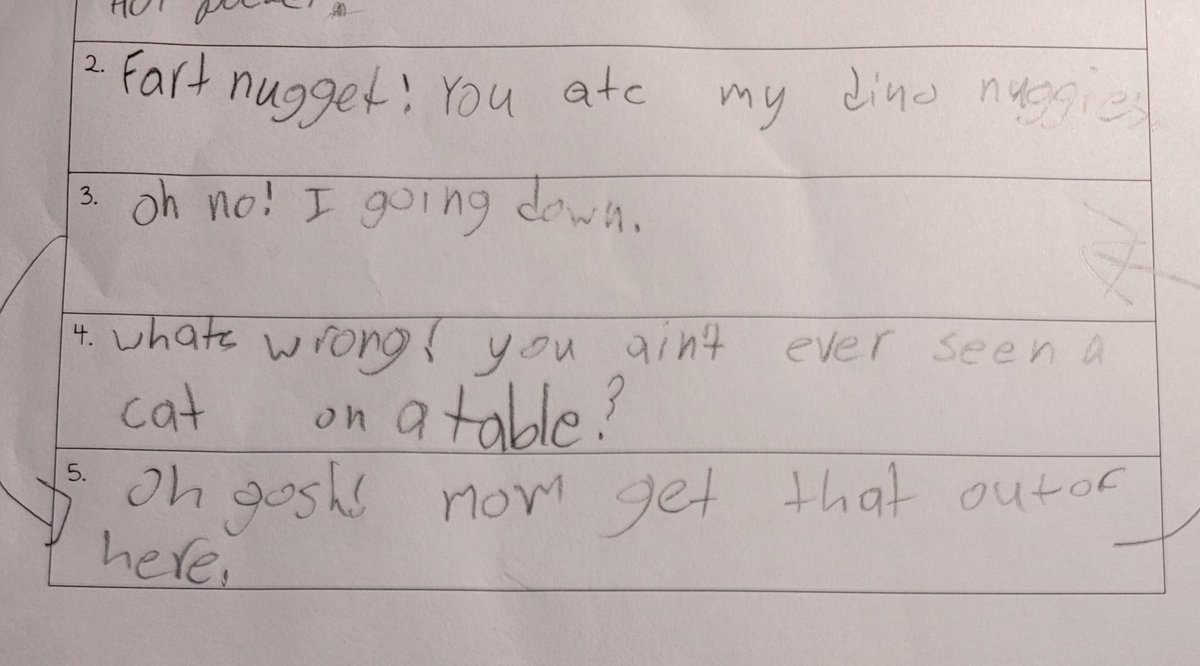 2. Fart nugget! You ate my dino nuggies.
3. Oh no! I going down.
4. whats wrong! you aint ever seen a
cat on a table?
5. Oh gosh! mom get that outof
here.